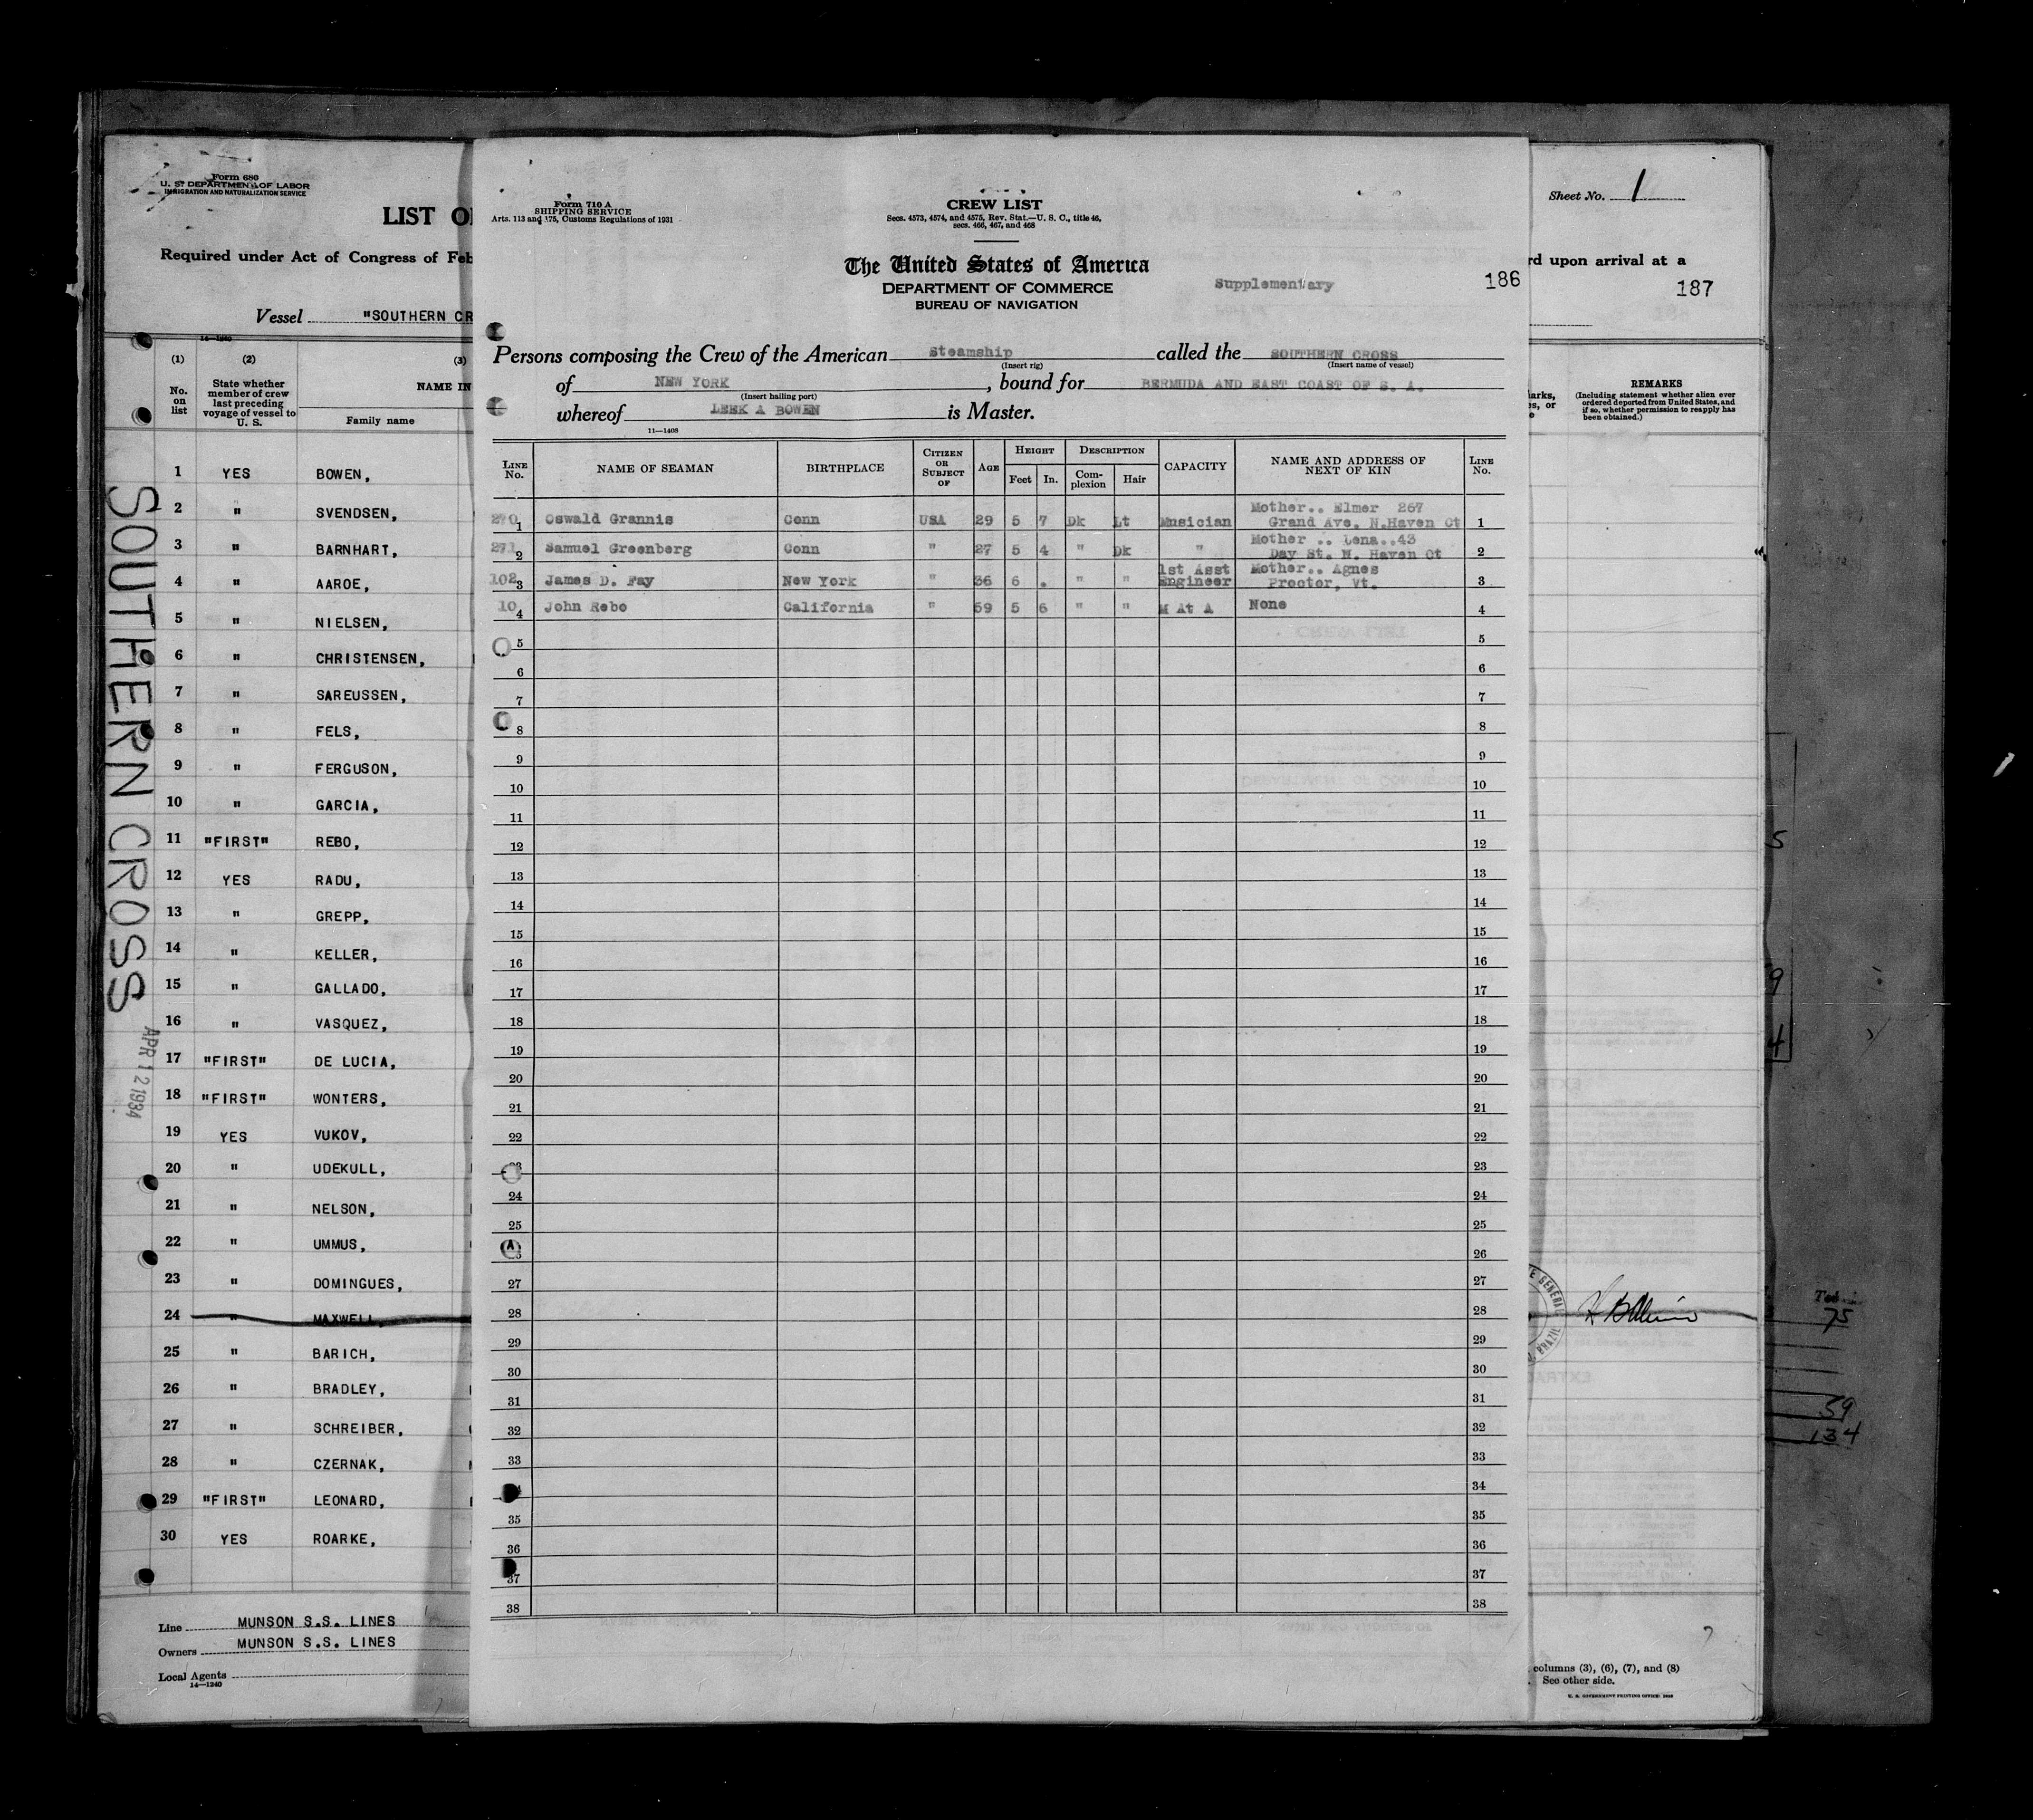 Form 680
U. S. DEPARTMENT OF LABOR
IMMIGRATION AND NATURALIZATION SERVICE
LIST O
Required under Act of Congress of Feb
Vessel "SOUTHERN CR
14—1240
(1) (2) (3)
No. on list State whether member of crew last preceding voyage of vessel to U. S. NAME IN
Family name
1 YES BOWEN,
2 " SVENDSEN,
3 " BARNHART,
4 " AAROE,
5 " NIELSEN,
6 " CHRISTENSEN,
7 " SAREUSSEN,
8 " FELS,
9 " FERGUSON,
10 " GARCIA,
11 "FIRST" REBO,
12 YES RADU,
13 " GREPP,
14 " KELLER,
15 " GALLADO,
16 " VASQUEZ,
17 "FIRST" DE LUCIA,
18 "FIRST" WONTERS,
19 YES VUKOV,
20 " UDEKULL,
21 " NELSON,
22 " UMMUS,
23 " DOMINGUES,
24 " MAXWELL,
25 " BARICH,
26 " BRADLEY,
27 " SCHREIBER,
28 " CZERNAK,
29 "FIRST" LEONARD,
30 YES ROARKE,
SOUTHERN CROSS
APR 12 1934
Line MUNSON S.S. LINES
Owners MUNSON S.S. LINES
Local Agents
14—1240
Form 710 A
SHIPPING SERVICE
Arts. 113 and 175, Customs Regulations of 1931
CREW LIST
Secs. 4573, 4574, and 4575, Rev. Stat.—U. S. C., title 46,
secs. 466, 467, and 468
The United States of America
DEPARTMENT OF COMMERCE
BUREAU OF NAVIGATION
Supplementary
186
Persons composing the Crew of the American Steamship called the SOUTHERN CROSS
(Insert rig) (Insert name of vessel)
of NEW YORK, bound for BERMUDA AND EAST COAST OF S. A.
(Insert hailing port)
whereof LEEK A BOWEN is Master.
11—1408
LINE No. NAME OF SEAMAN BIRTHPLACE CITIZEN OR SUBJECT OF AGE HEIGHT DESCRIPTION CAPACITY NAME AND ADDRESS OF NEXT OF KIN LINE No.
Feet In. Complexion Hair
270 1 Oswald Grannis Conn USA 29 5 7 Dk Lt Musician Mother.. Elmer 267 Grand Ave. N.Haven Ct 1
271 2 Samuel Greenberg Conn " 27 5 4 " Dk " Mother .. Lena..43 Day St. N. Haven Ct 2
102 3 James D. Fay New York " 36 6 . " " 1st Asst Engineer Mother.. Agnes Proctor, Vt. 3
10 4 John Rebo California " 59 5 6 " " M At A None 4
5 5
6 6
7 7
8 8
9 9
10 10
11 11
12 12
13 13
14 14
15 15
16 16
17 17
18 18
19 19
20 20
21 21
22 22
23 23
24 24
25 25
26
27 27
28 28
29 29
30 30
31 31
32 32
33 33
34
35 35
36 36
37 37
38 38
Sheet No. 1
rd upon arrival at a
187
REMARKS
(Including statement whether alien ever ordered deported from United States, and if so, whether permission to reapply has been obtained.)
columns (3), (6), (7), and (8)
See other side.
U. S. GOVERNMENT PRINTING OFFICE
5
9
4
75
59
134